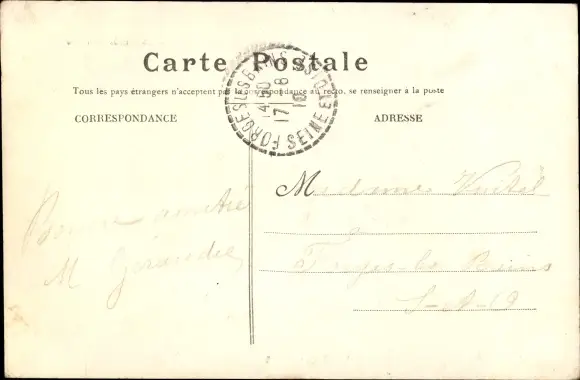 Carte Postale
Tous les pays étrangers n'acceptent pas la correspondance au recto, se renseigner à la poste
CORRESPONDANCE
ADRESSE
FORGES LES BAINS SEINE ET OISE
14 50
17 - 8
10
Bonne amitié
M
Madame
à
Forges-les Bains
S-&-O